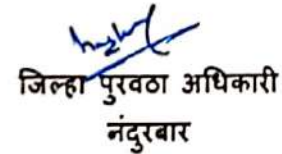 जिल्हा पुरवठा अधिकारी
नंदुरबार